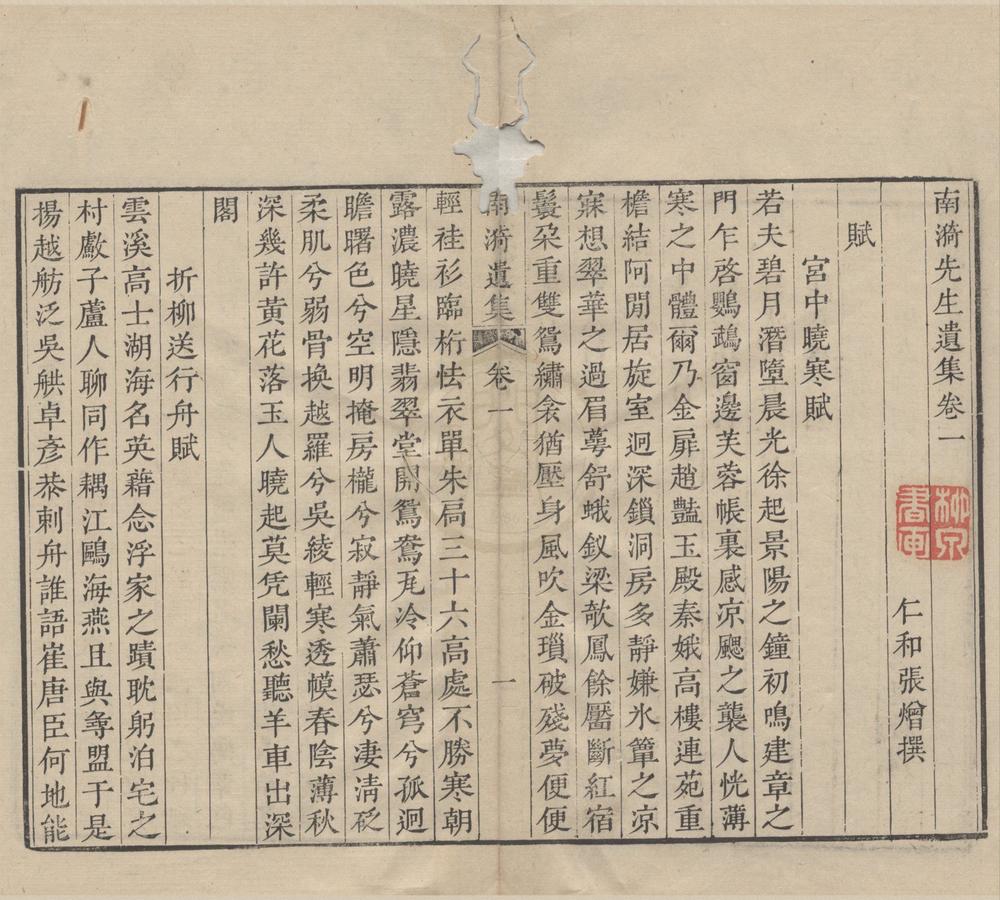 南漪先生遺集卷一
仁和張熷撰
賦
宮中曉寒賦
若夫碧月潛墮晨光徐起景陽之鐘初鳴建章之
門乍啓鸚鵡窗邊芙蓉帳裏感凉颸之襲人恍薄
寒之中體爾乃金扉趙豔玉殿秦娥高樓連苑重
檐結阿閒居旋室迴深鎖洞房多靜嫌氷簟之凉
寐想翠華之過眉蕚舒蛾釵梁欹鳳餘黶斷紅宿
鬟朶重雙鴛繡衾猶壓身風吹金瑣破殘夢便便
南漪遺集
卷一
一
輕袿衫臨桁怯衣單朱扃三十六高處不勝寒朝
露濃曉星隱翡翠堂開鴛鴦瓦冷仰蒼穹兮孤迥
瞻曙色兮空明掩房櫳兮寂靜氣蕭瑟兮凄淸砭
柔肌兮弱骨換越羅兮吳綾輕寒透幙春陰薄秋
深幾許黃花落玉人曉起莫凭闌愁聽羊車出深
閣
折柳送行舟賦
雲溪高士湖海名英藉念浮家之蹟耽躬泊宅之
村獻子蘆人聊同作耦江鷗海燕且與等盟于是
揚越舫泛吳舼卓彦恭刺舟誰語崔唐臣何地能
柳泉書画